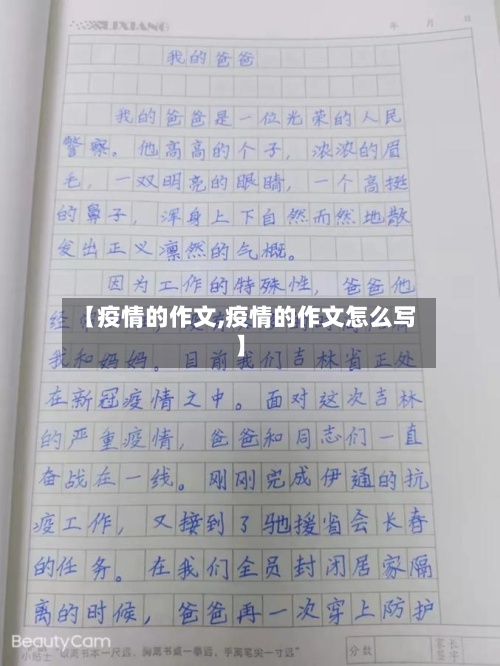 LIXIANG
年 月 日
我的爸爸
我的爸爸是一位光荣的人民
警察。他高高的个子，浓浓的眉
毛，一双明亮的眼睛，一个高挺
的鼻子，浑身上下自然而然地散
发出正义凛然的气概。
因为工作的特殊性，爸爸他
经
【疫情的作文,疫情的作文怎么写
】
我和妈妈。目前我们吉林省正处
在新冠疫情之中。面对这次吉林
的严重疫情，爸爸和同志们一直
奋战在一线。刚刚完成伊通的抗
疫工作，又接到了驰援省会长春
的任务。在我们全员封闭居家隔
离的时候，爸爸再一次穿上防护
BeautyCam
小贴士 眼离书本一尺远，胸离书桌一拳远，手离笔尖一寸远"
分数
家长
签字